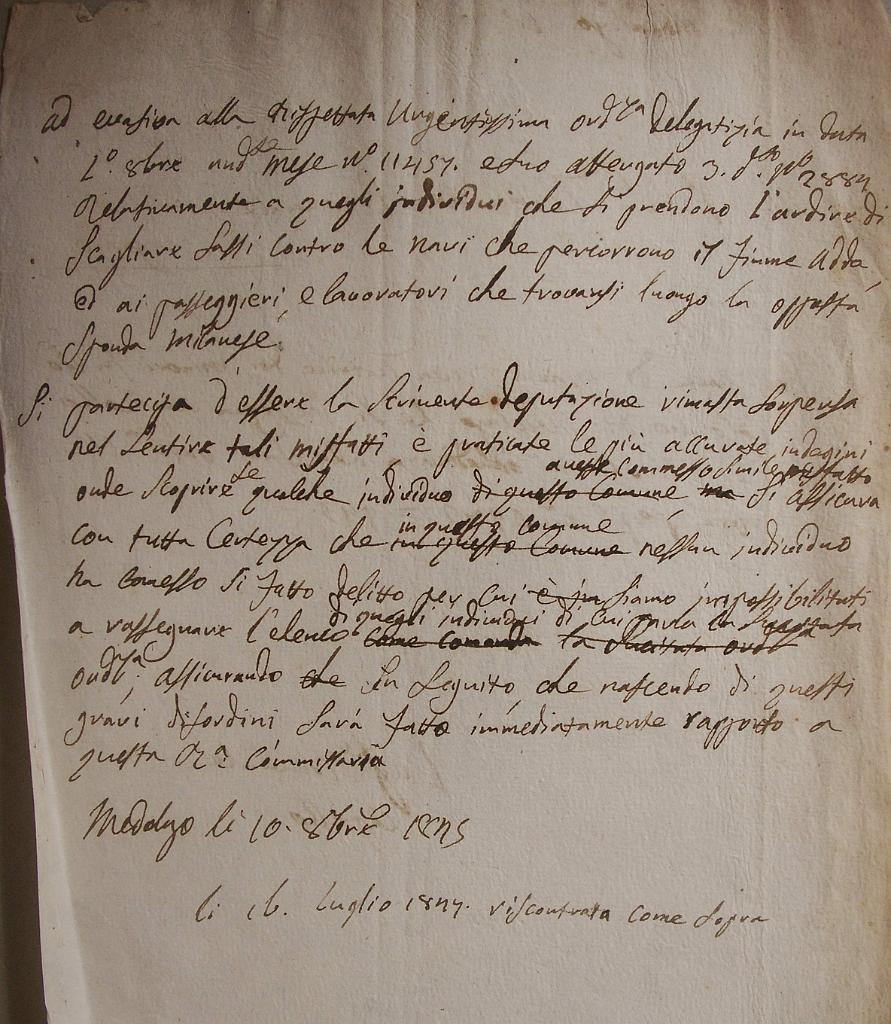 ad evasion alla Rispettata Urgentissima ord.za Delegatizia in data
1.º 8bre and.te mese Nº. 11457. e suo attergato 3. d.to Nº 2884
Relativamente a quegli individui che si prendono l'ardire di
Scagliare Sassi Contro le Navi che percorrono il fiume Adda,
ed ai passeggieri, e lavoratori che trovansi luongo la opposta
Sponda Milanese.
Si partecipa d'essere la Scrivente Deputazione rimasta Sorpresa
nel Sentire tali misfatti è praticate le più accurate indagini
avesse Commesso Simile misfatto
onde Scoprire se qualche individuo di questo Comune ma Si assicura
in questo Comune
con tutta Certezza che in questo Comune nessun individuo
ha comesso Si fatto delitto per cui è in Siamo impossibilitati
di quegli individui di cui parla la Succitata
a rassegnare l'elenco Come Comanda la Succitata ord.za
ord.za, assicurando che In Seguito, che nascendo di questi
gravi disordini Sarà fatto immediatamente rapporto a
questa R.a Commissaria
Medolago li 10. 8bre 1845
li 16. Luglio 1847. riscontrata Come Sopra